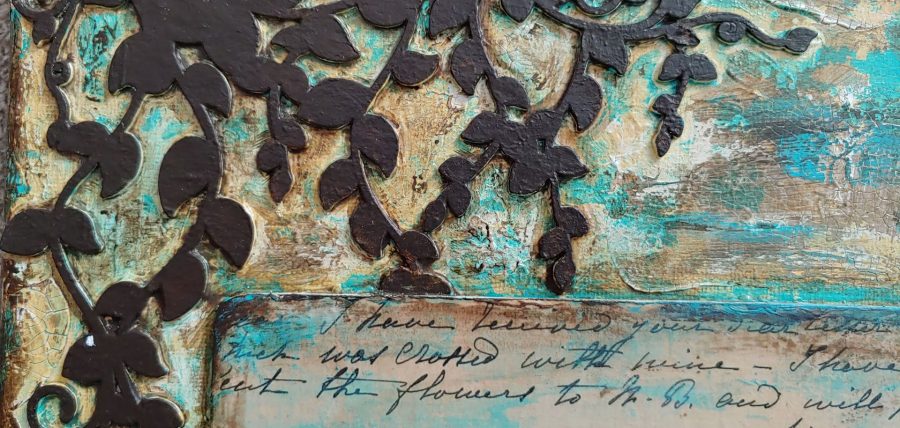 I have received your dear letter
which was crossed with mine – I have
sent the flowers to M. B. and will